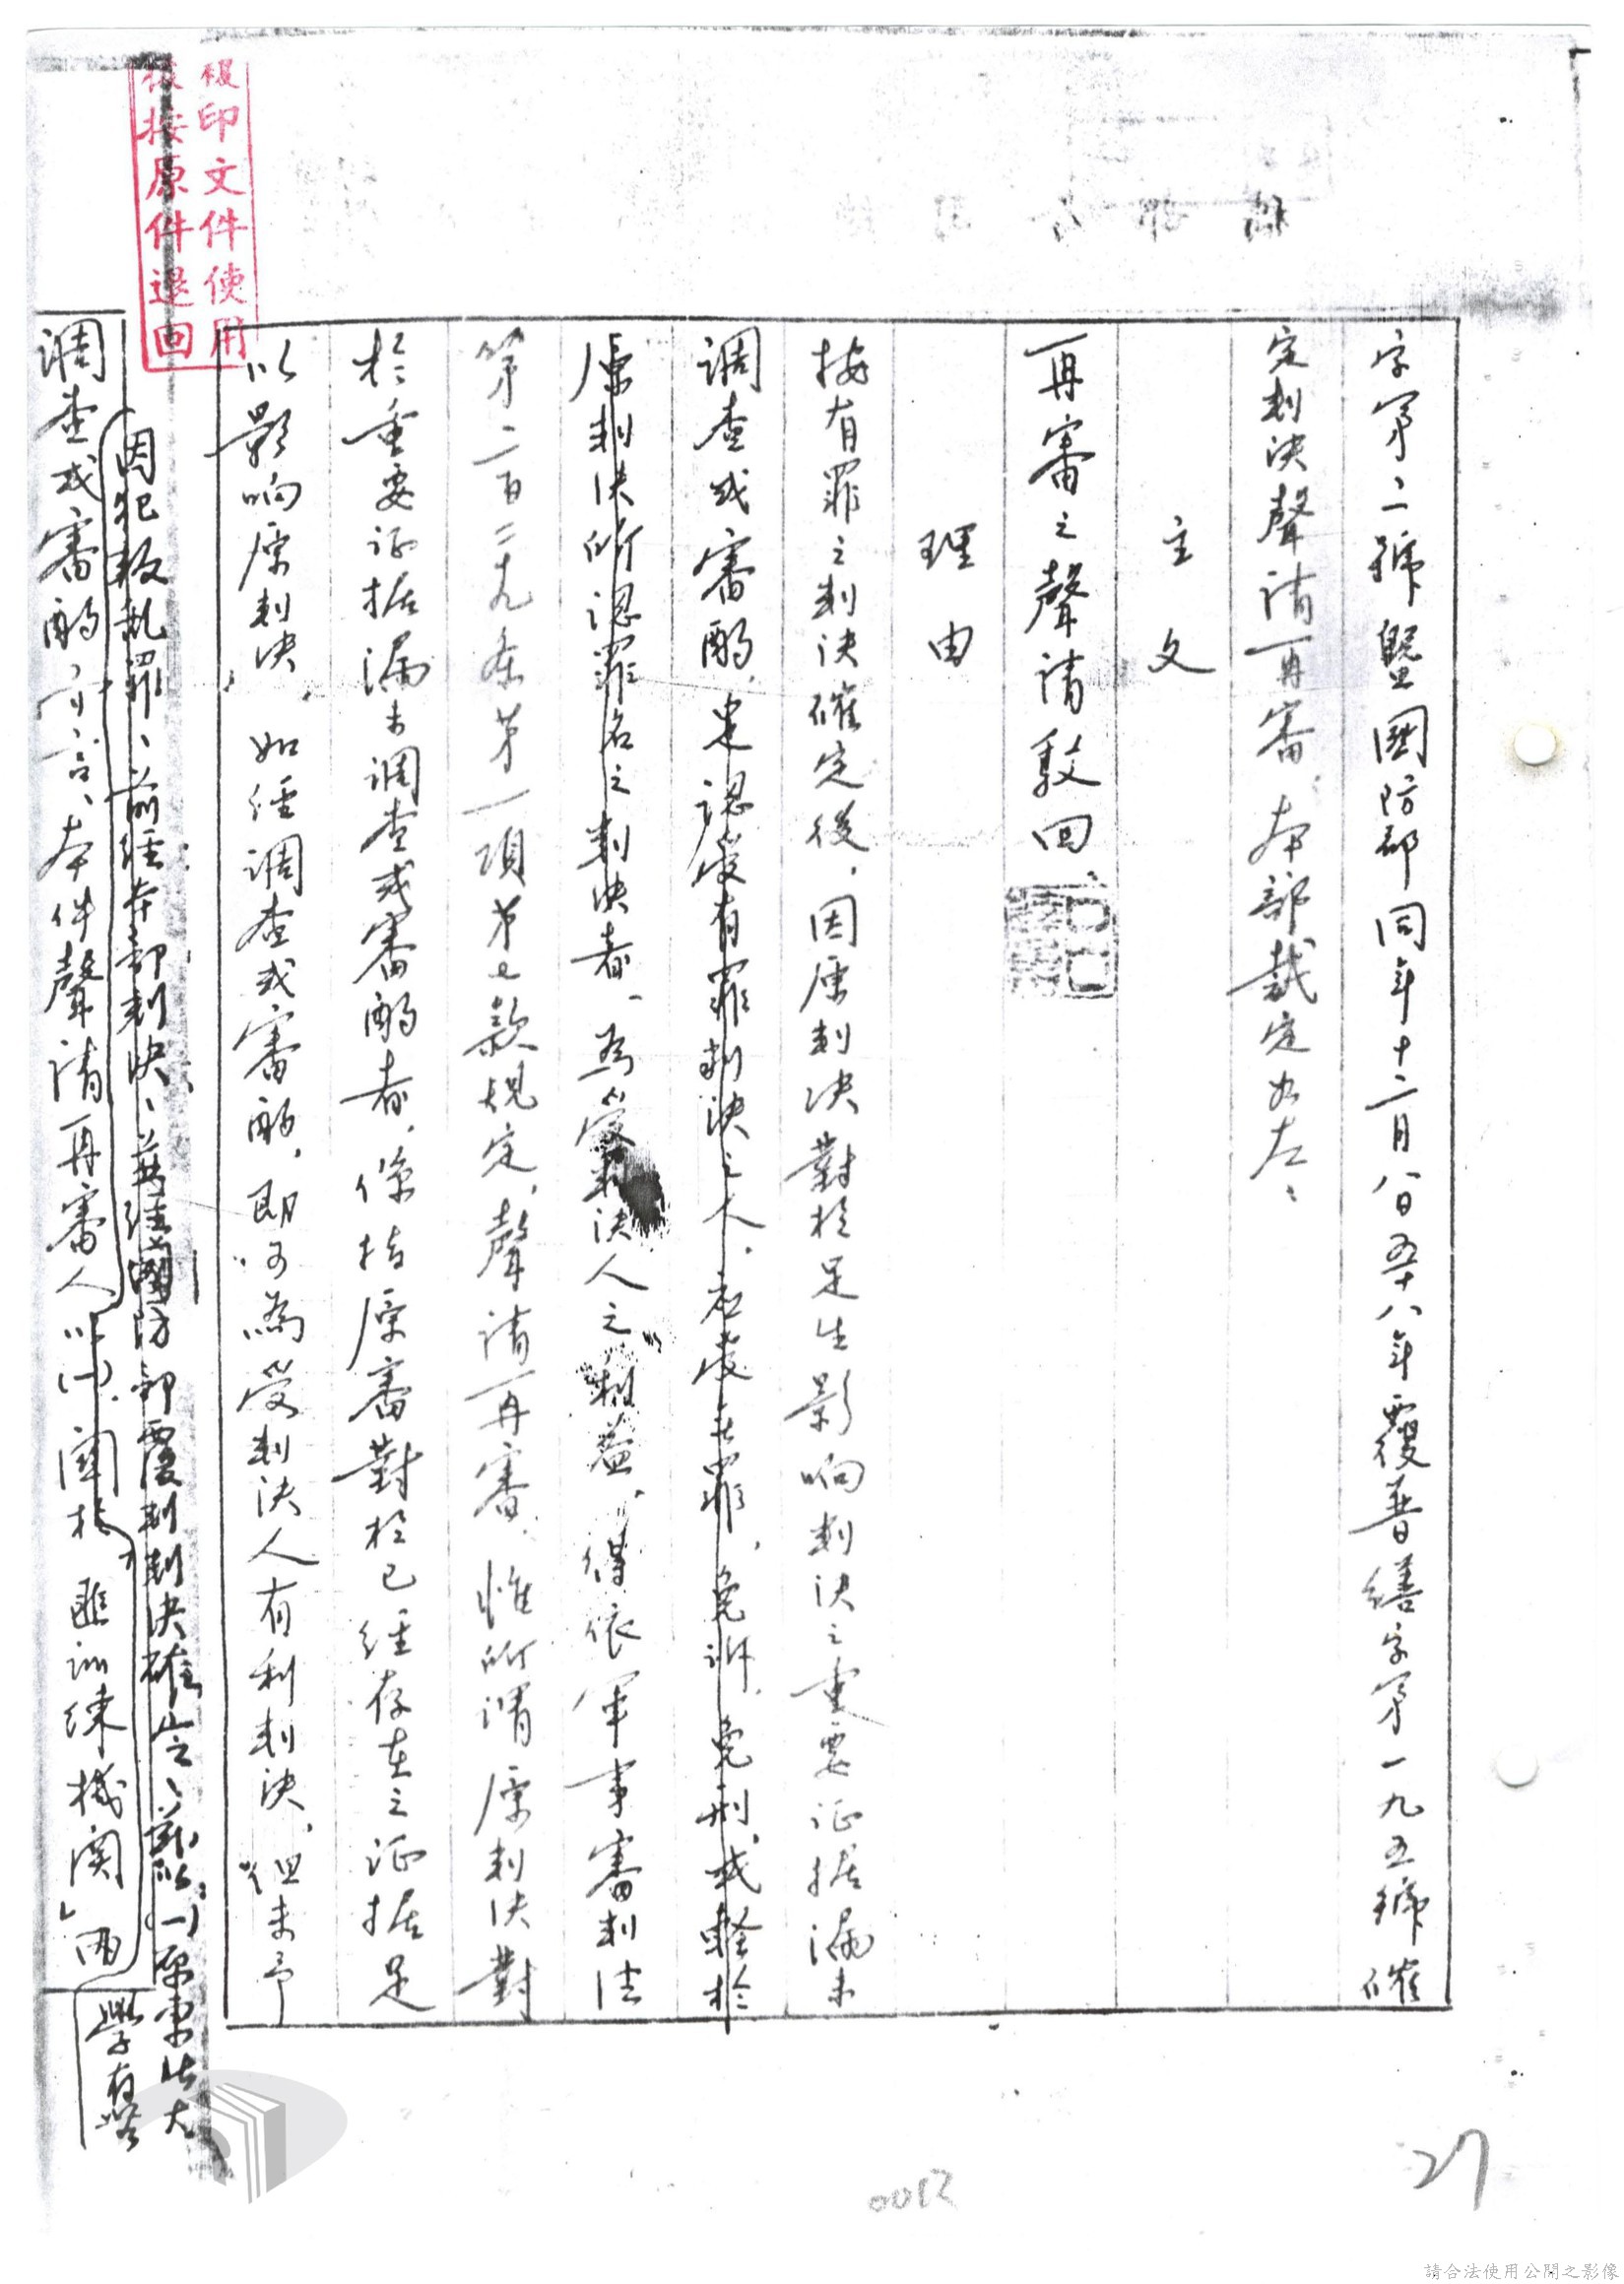 字第二號暨國防部同年十二月八日五十八年覆普繕字第一九五號確
定判決聲請再審、本部裁定如左、
主文
再審之聲請駁回、
理由
按有罪之判決確定後，因原判決對於足生影响判決之重要证据漏未
調查或審酌，足認受有罪判決之人，應受無罪，免訴，免刑，或輕於
原判決所認罪名之判決者、為受判決人之利益，得依軍事審判法
第二百二十九条第一項第七款規定，聲請再審，惟所謂原判決對
於重要证据漏未調查或審酌者，係指原審對於已經存在之证据足
以影响原判決，如經調查或審酌，即可為受判決人有利判決，但未予
因犯叛乱罪、前經本部判決、並經國防部覆判判決確定、茲以
調查或審酌而言、本件聲請再審人
匪訓練機関」而
複印文件使用
後按原件退回
27
請合法使用公開之影像